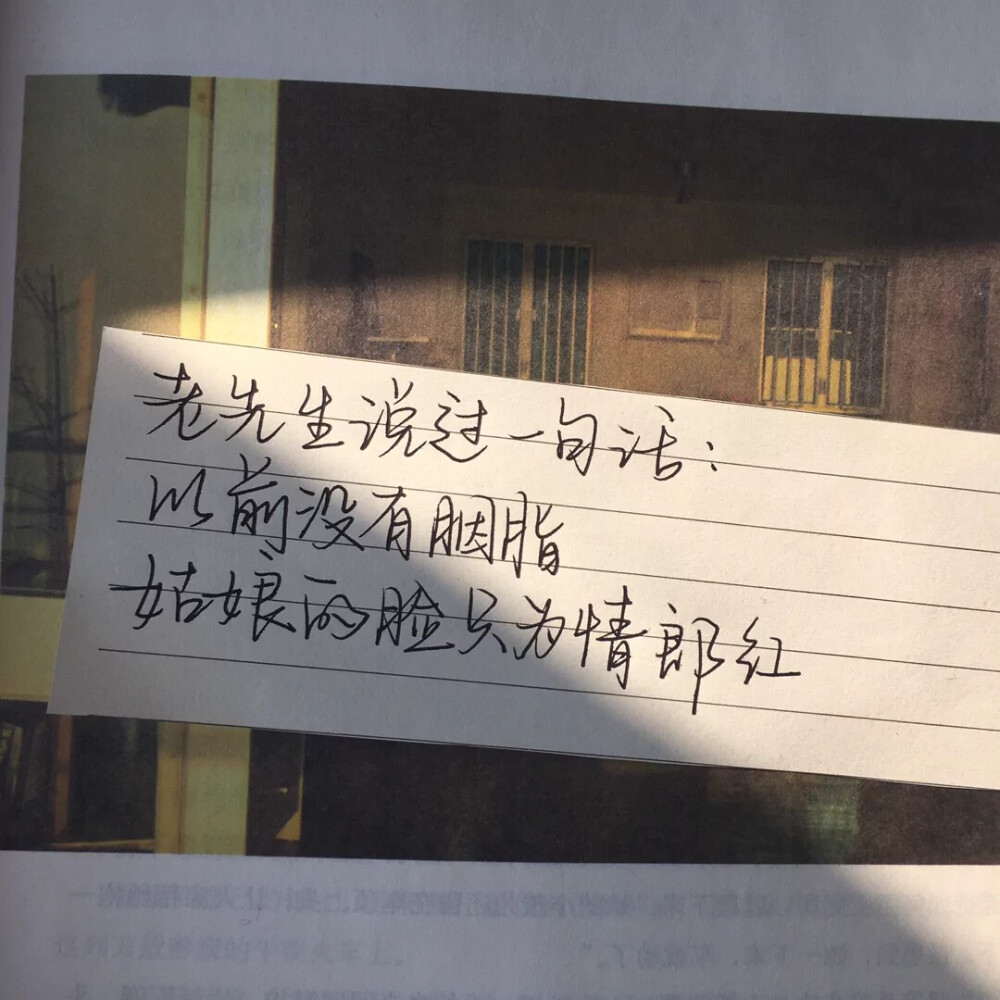 老先生说过一句话：
以前没有胭脂
姑娘的脸只为情郎红